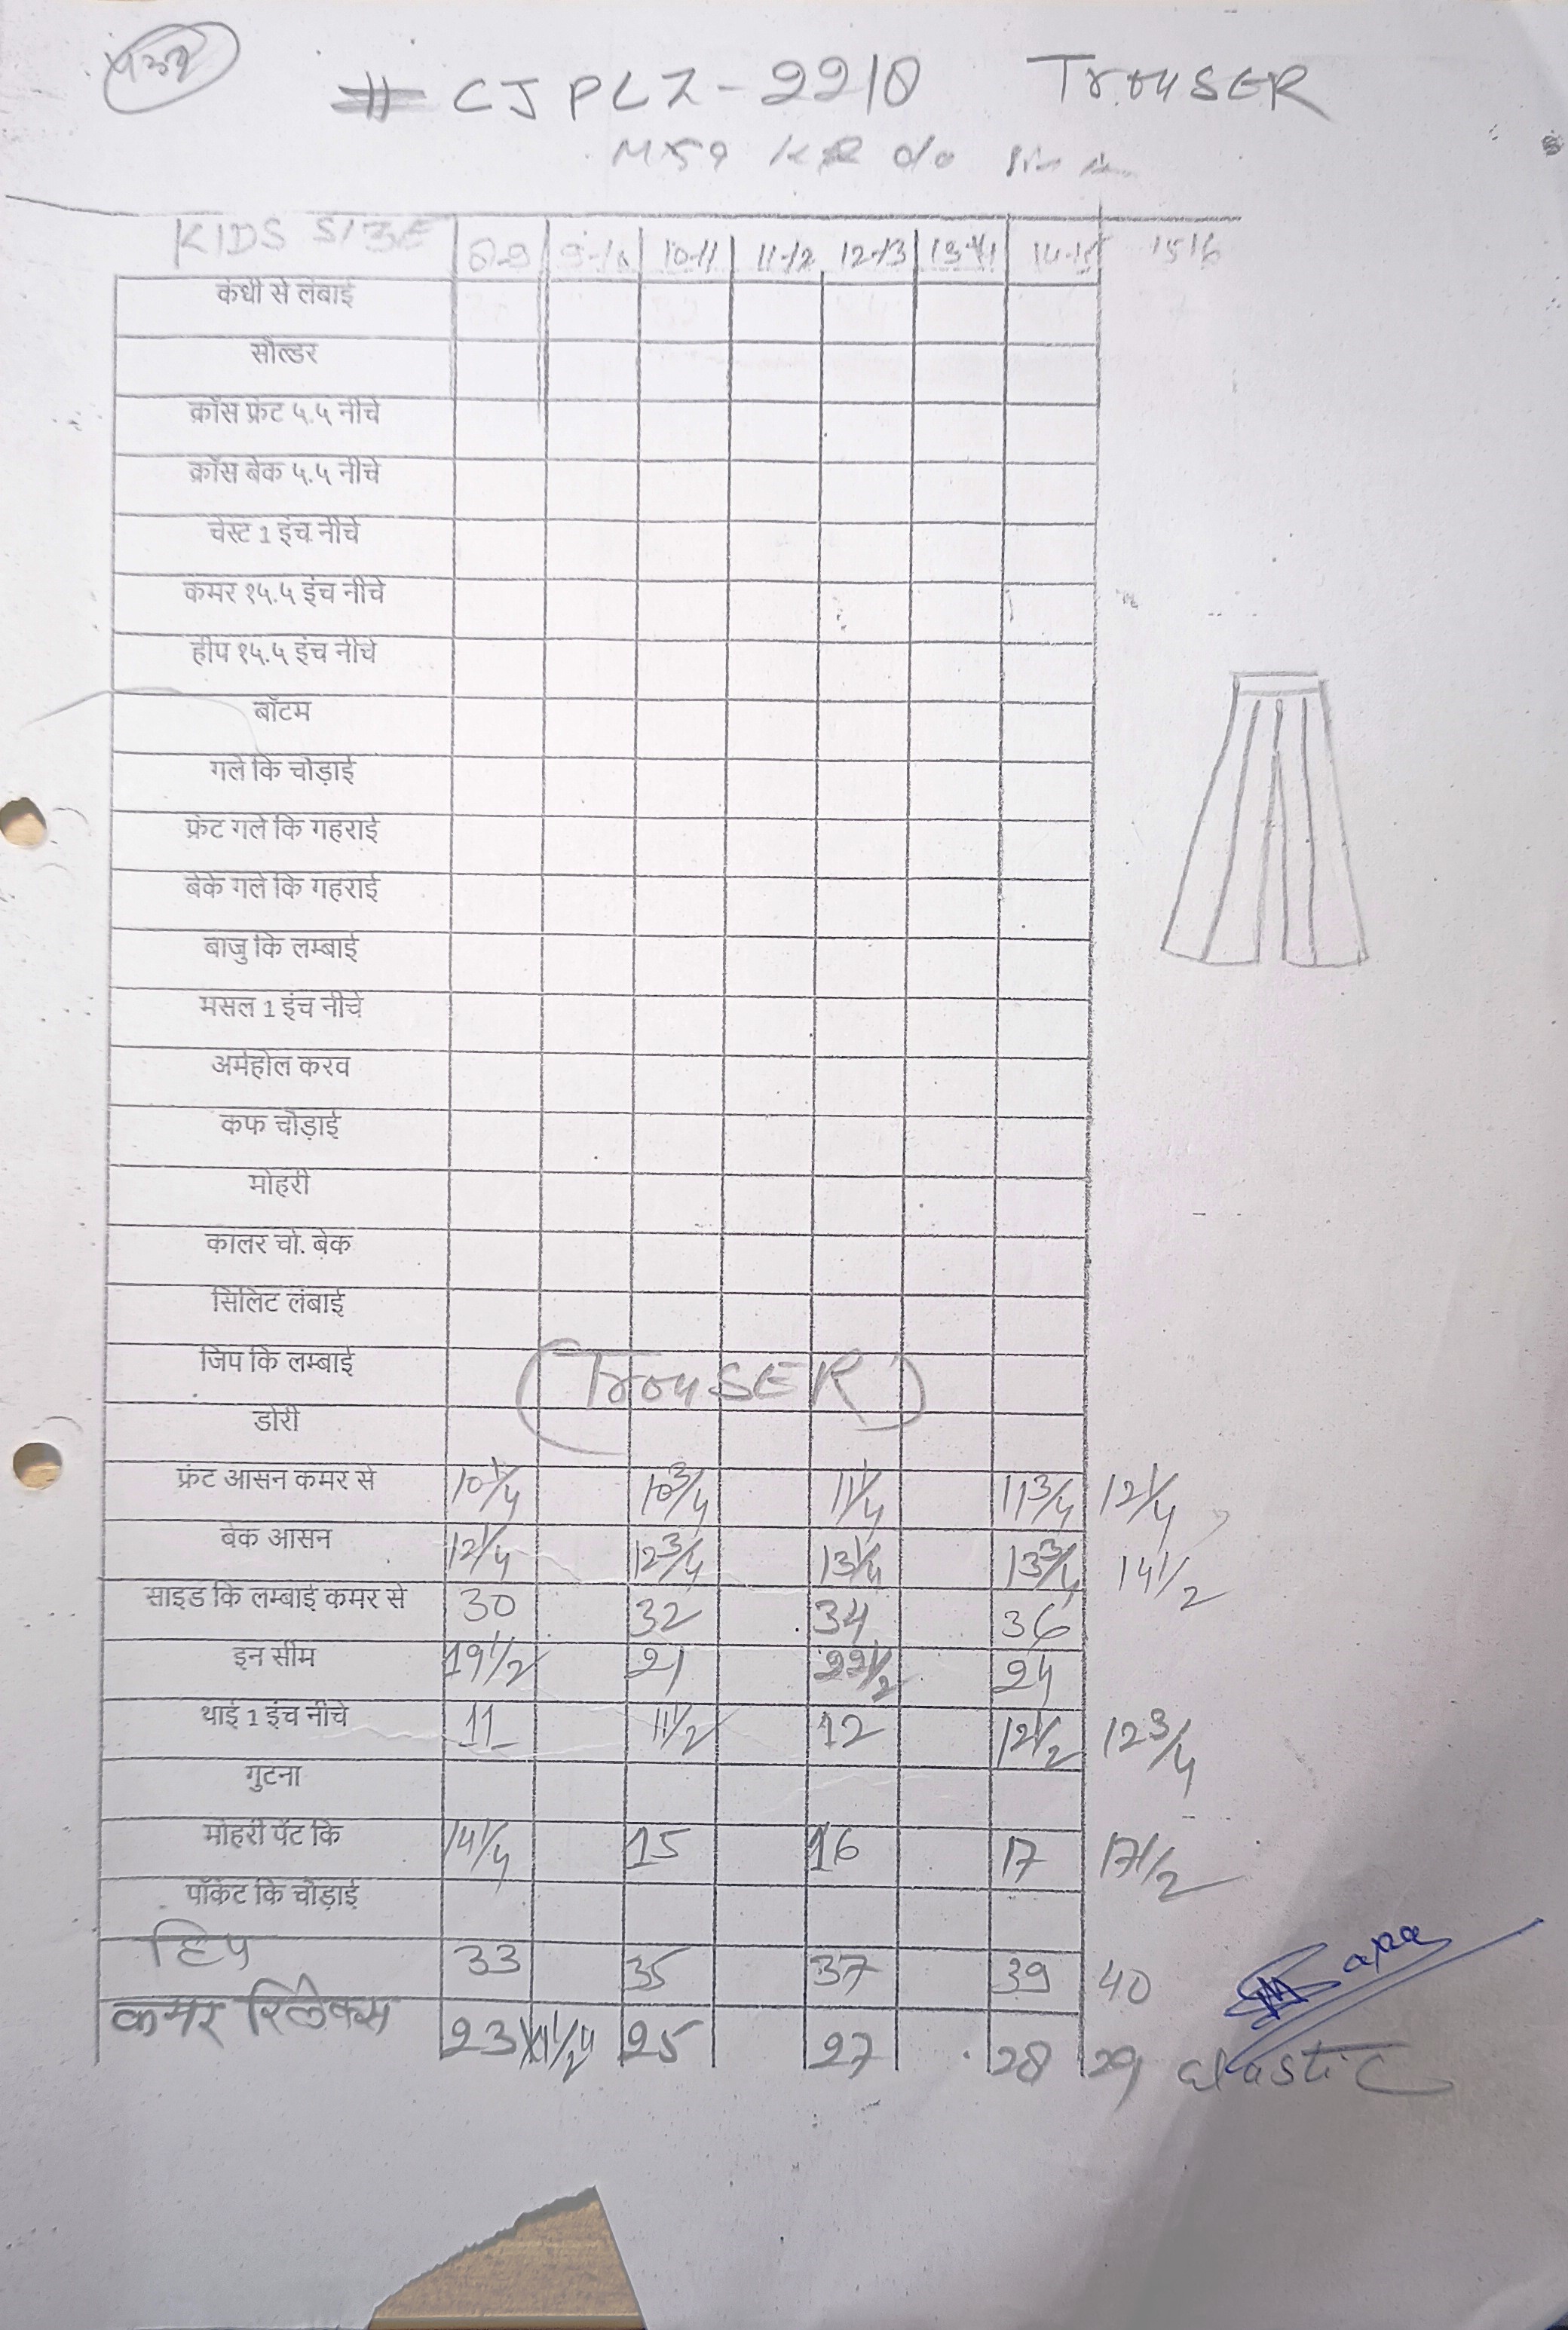 # CJPLZ-2210 TrouSER
KIDS SIZE 8-9 9-10 10-11 11-12 12-13 13-14 14-15 15 16
कंधी से लंबाई
सौल्डर
क्रॉस फ्रंट ५.५ नीचे
क्रॉस बेक ५.५ नीचे
चेस्ट 1 इंच नीचे
कमर १५.५ इंच नीचे
हीप १५.५ इंच नीचे
बॉटम
गले कि चोड़ाई
फ्रंट गले कि गहराई
बेके गले कि गहराई
बाजु कि लम्बाई
मसल 1 इंच नीचे
अर्महोल करव
कफ चौड़ाई
मोहरी
कालर चो. बेक
सिलिट लंबाई
जिप कि लम्बाई
(TrouSER)
डोरी
फ्रंट आसन कमर से 10 1/4 10 3/4 11 1/4 11 3/4 12 1/4
बेक आसन 12 1/4 12 3/4 13 1/4 13 3/4 14 1/2
साइड कि लम्बाई कमर से 30 32 34 36
इन सीम 19 1/2 21 22 1/2 24
थाई 1 इंच नीचे 11 11 1/2 12 12 1/2 12 3/4
गुटना
मोहरी पेंट कि 14 1/4 15 16 17 17 1/2
पॉकेट कि चोड़ाई
हिप 33 35 37 39 40
कमर रिलेक्स 23 25 27 28 29 elastic